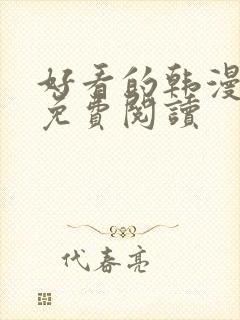 好看的韩漫
免費閱讀
代春亮